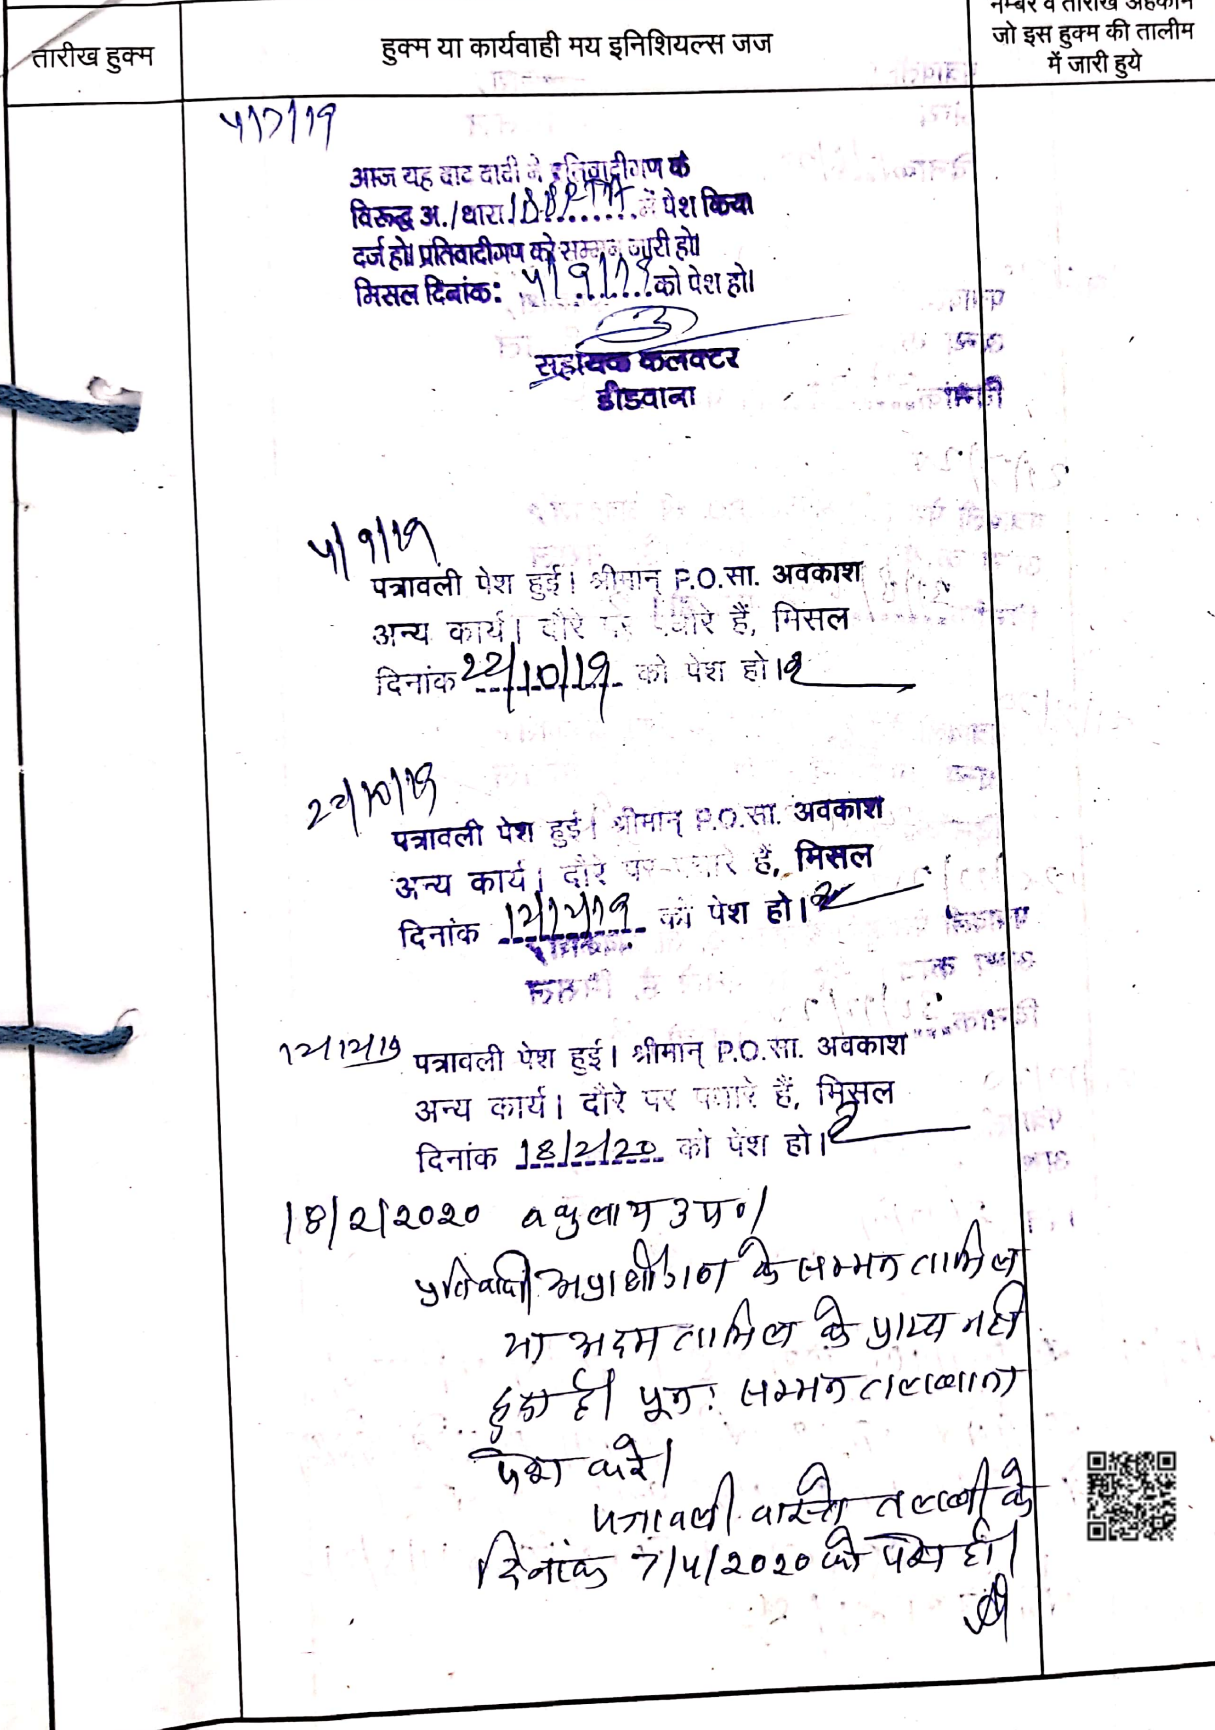 नम्बर व तारीख अहकाम
तारीख हुक्म
हुक्म या कार्यवाही मय इनिशियल्स जज
जो इस हुक्म की तालीम
में जारी हुये
4/7/19
आज यह वाद वादी ने प्रतिवादीगण के
विरूद्ध अ./धारा 188 में पेश किया
दर्ज हो। प्रतिवादीगण को सम्मन जारी हो।
मिसल दिनांक: 4/9/19 को पेश हो।
सहायक कलक्टर
डीडवाना
4/9/19
पत्रावली पेश हुई। श्रीमान् P.O.सा. अवकाश
अन्य कार्य। दौरे पर पधारे हैं, मिसल
दिनांक 22/10/19 को पेश हो।
22/10/19
पत्रावली पेश हुई। श्रीमान् P.O.सा. अवकाश
अन्य कार्य। दौरे पर पधारे हैं, मिसल
दिनांक 12/12/19 को पेश हो।
12/12/19 पत्रावली पेश हुई। श्रीमान् P.O.सा. अवकाश
अन्य कार्य। दौरे पर पधारे हैं, मिसल
दिनांक 18/2/20 को पेश हो।
18/2/2020 वकुलाय उप०।
प्रतिवादी/अप्रार्थीगण के सम्मन तामिल
या अदम तामिल के प्राप्त नही
हुआ है। पून: सम्मन तलबाना
पेश करे।
पत्रावली वास्ते तलबी के
दिनांक 7/4/2020 को पेश हो।